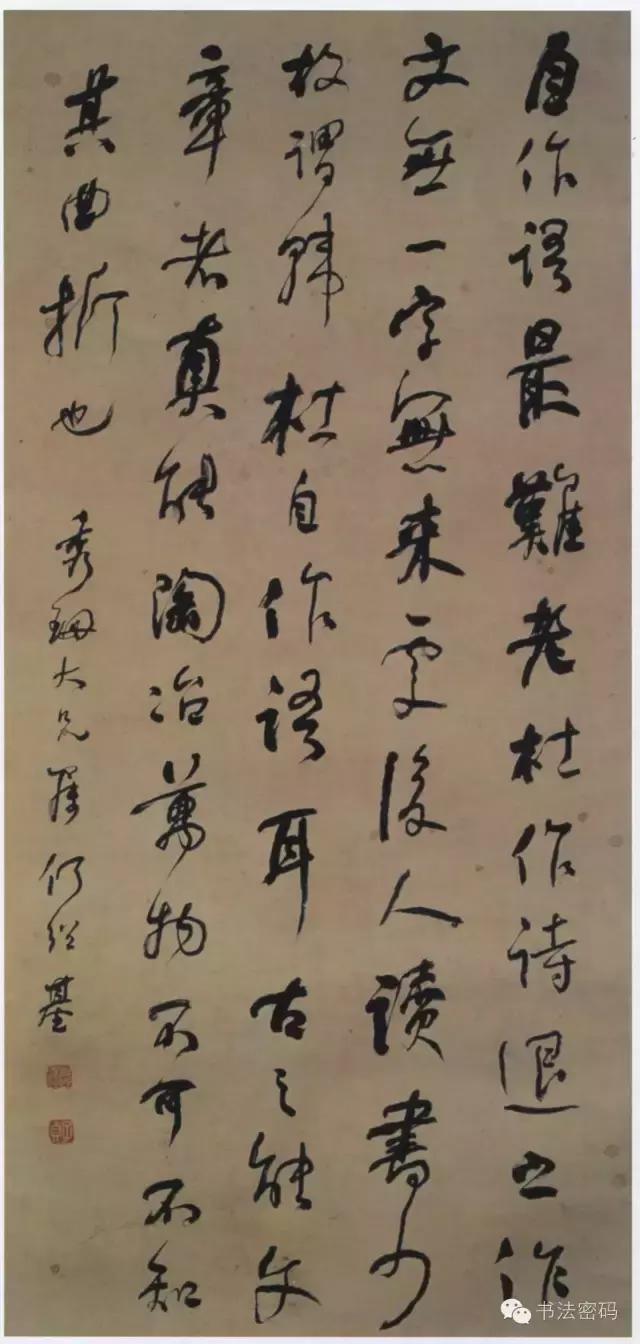 自作语最難老杜作诗退之作
文無一字無来處後人讀書少
故謂韩杜自作语耳古之能文
章者真能陶冶萬物不可不知
其曲折也
秀珊大兄属何绍基
书法密码